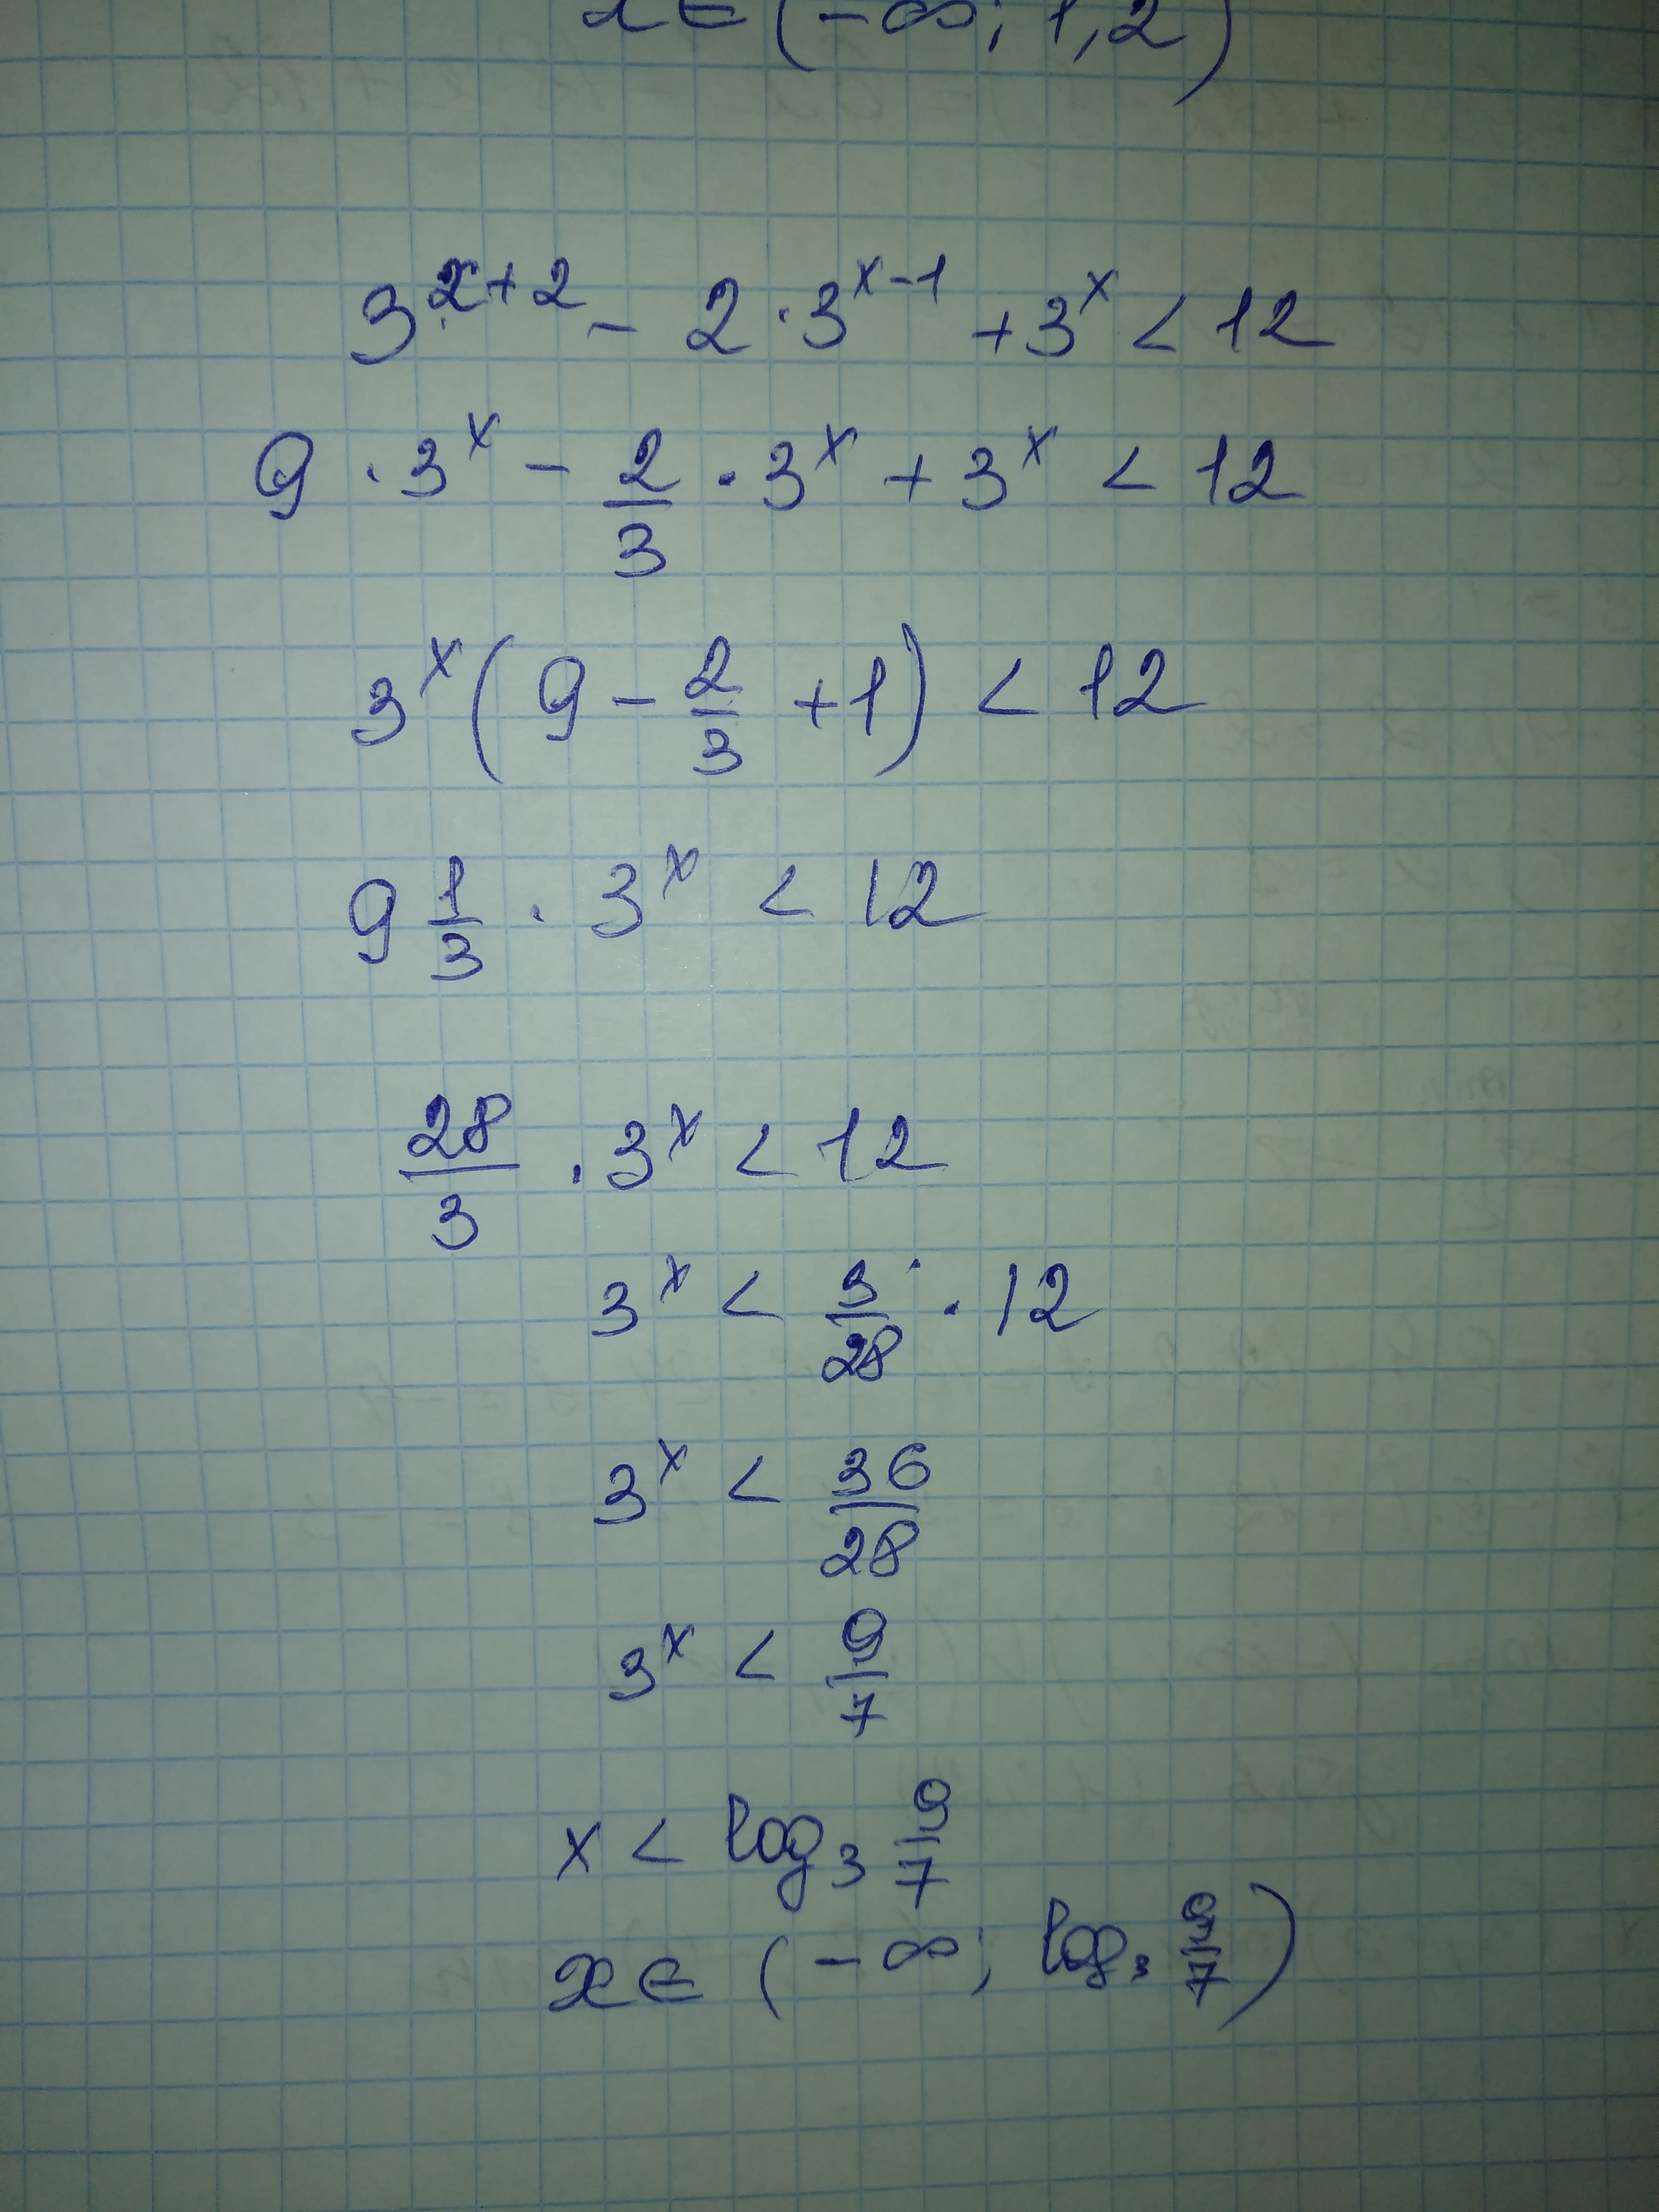 x ∈ (-∞; 1,2)
3^{x+2} - 2 · 3^{x-1} + 3^x < 12
9 · 3^x - \frac{2}{3} · 3^x + 3^x < 12
3^x (9 - \frac{2}{3} + 1) < 12
9 \frac{1}{3} · 3^x < 12
\frac{28}{3} · 3^x < 12
3^x < \frac{3}{28} · 12
3^x < \frac{36}{28}
3^x < \frac{9}{7}
x < log_3 \frac{9}{7}
x ∈ (-∞; log_3 \frac{9}{7})